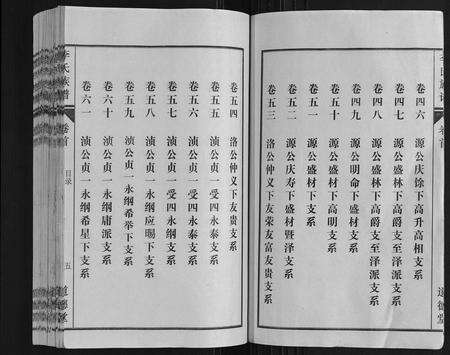 卷四六 源公庆馀下高升高相支系
卷四七 源公盛林下高爵支至泽派支系
卷四八 源公盛林下高爵支至泽派支系
卷四九 源公明命下盛材支系
卷五十 源公盛材下高明支系
卷五一 源公盛材下支系
卷五二 源公庆寿下盛材暨泽支系
卷五三 洛公仲义下友荣友富友贵支系
道德堂
李氏族谱
卷首
卷五四 洛公仲义下友贵支系
卷五五 浈公贞一受四永泰支系
卷五六 浈公贞一受四永泰支系
卷五七 浈公贞一受四永纲支系
卷五八 浈公贞一永纲应赐下支系
卷五九 浈公贞一永纲希举下支系
卷六十 浈公贞一永纲庸派支系
卷六一 浈公贞一永纲希星下支系
李氏族谱
卷首
目录
五
道德堂